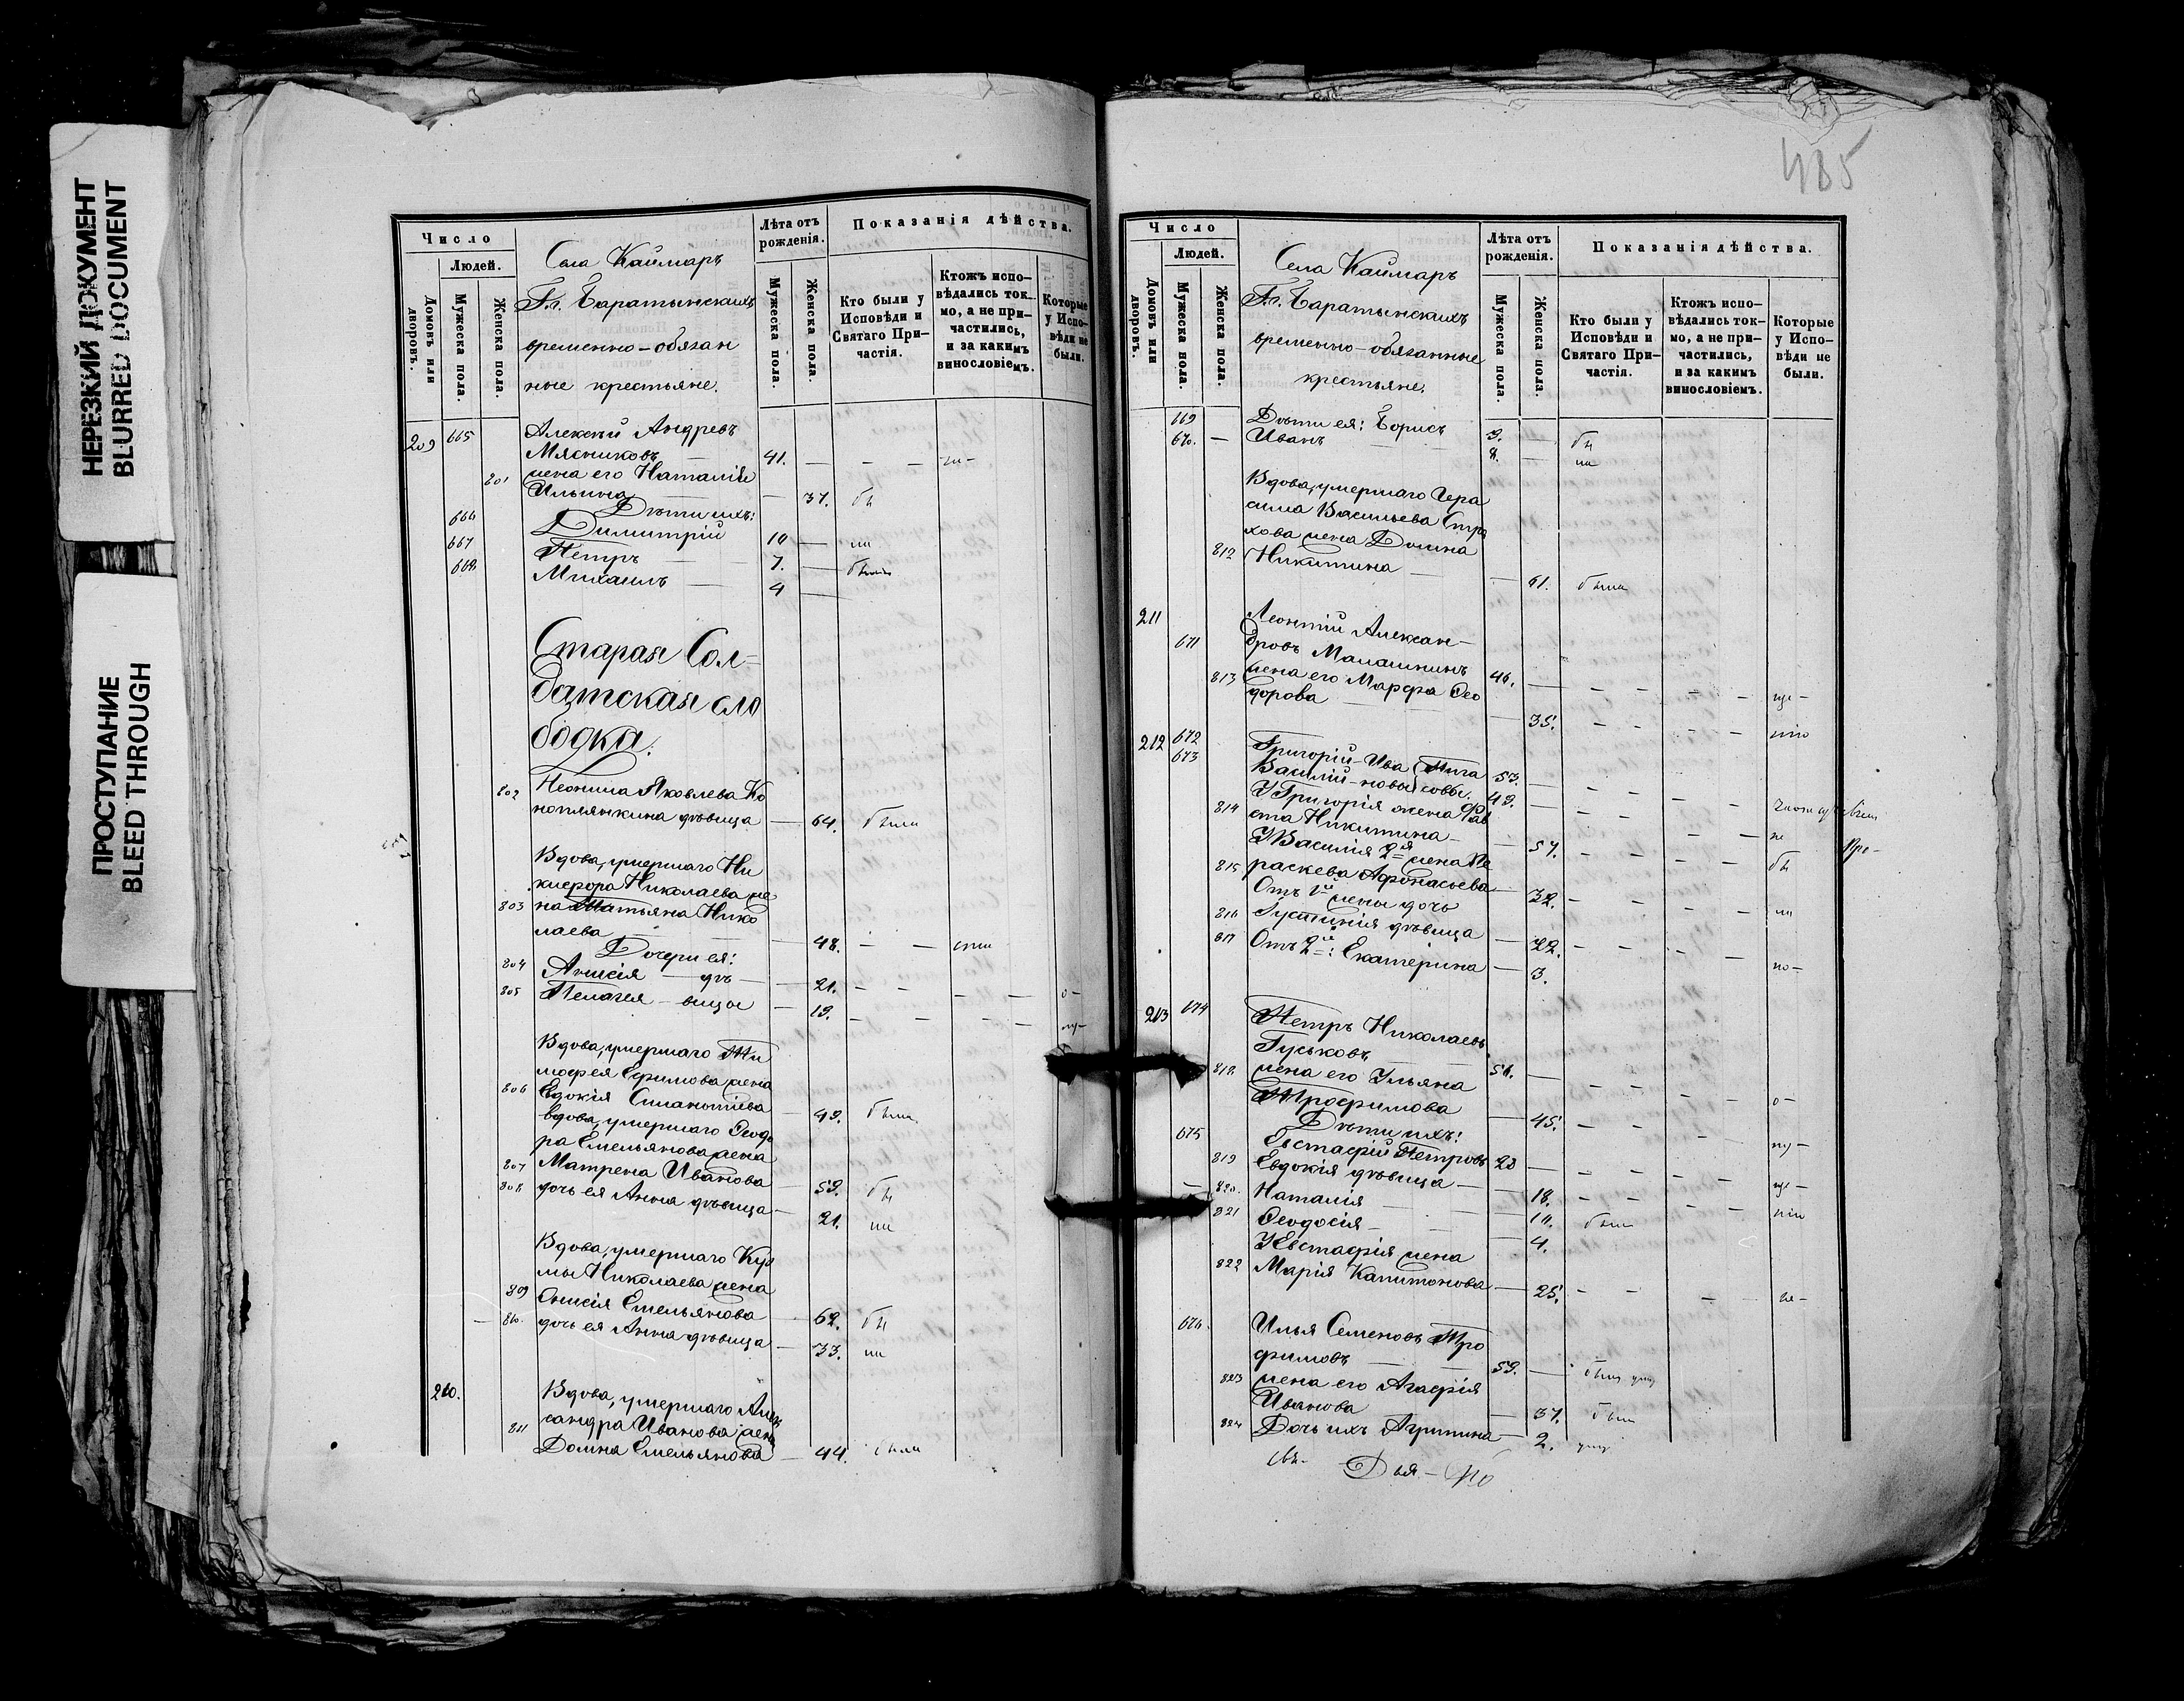 НЕРЕЗКИЙ ДОКУМЕНТ
BLURRED DOCUMENT
ПРОСТУПАНИЕ
BLEED THROUGH
Число
Людей.
Домовъ или дворовъ.
Мужеска пола.
Женска пола.
Села Каймаръ
Гг. Баратынскихъ
временно-обязан
ные крестьяне.
Лѣта отъ рожденія.
Мужеска пола.
Женска пола.
Показанія дѣйства.
Кто были у Исповѣди и Святаго Причастія.
Ктожъ исповѣдались токмо, а не причастились, и за какимъ винословіемъ.
Которые у Исповѣди не были.
209 665 Алексѣй Андреевъ
Мясниковъ — 41.
801 жена его Наталія
Ильина — 37. бы
Дѣти ихъ:
666 Димитрій 10 — ли
667 Петръ — 7.
668 Михаилъ — 4 —
Старая Сол-
датская сло
бодка.
802 Неонила Яковлева Ко
ноплянкина дѣвица — 64. была
Вдова, умершаго Ни
кифора Николаева же
803 на Татьяна Нико
лаева — 48.
Дочери ея:
804 Анисія — дѣ — 21.
805 Пелагея — вицы — 19.
Вдова, умершаго Ти
мофея Ефимова жена
806 Евдокія — 49. была
вдова, умершаго Ѳеодо
ра Емельянова жена
807 Матрена Иванова — 59. бы
808 дочь ея Анна дѣвица — 21. ли
Вдова, умершаго Кузь
мы Николаева жена
809 Онисія Емельянова — 62. бы
810. дочь ея Анна дѣвица — 33. ли
210. Вдова, умершаго Алек
сандра Иванова жена
811 Домна Емельянова — 44. была
485
Число
Людей.
Домовъ или дворовъ.
Мужеска пола.
Женска пола.
Села Каймаръ
Гг. Баратынскихъ
временно-обязанные
крестьяне.
Лѣта отъ рожденія.
Мужеска пола.
Женска пола.
Показанія дѣйства.
Кто были у Исповѣди и Святаго Причастія.
Ктожъ исповѣдались токмо, а не причастились, и за какимъ винословіемъ.
Которые у Исповѣди не были.
669 Дѣти ея: Борисъ 9. — бы
670. — Иванъ 8. — ли
Вдова, умершаго Гера
сима Васильева Стра
хова жена Домна
812 Никитина — 61. была
211 Леонтій Алексан-
671 дровъ Малашкинъ 46. —
813 жена его Марфа Ѳео
дорова — 35.
212 672 Григорій — Ива 53. —
673 Василій — новы 49. —
У Григорія жена Ѳав
814 ста Никитина — 57.
У Василія 2я жена Па
815 раскева Афонасьева — 32.
Отъ 1й жены дочь
816 Густинія дѣвица — 22.
817 Отъ 2й: Екатерина — 3.
213 674 Петръ Николаевъ
Гуськовъ
818. жена его Ульяна
Трофимова — 45.
Дѣти ихъ:
675 Евстафій Петровъ
819 Евдокія дѣвица — 18.
820. Наталія
821 Ѳеодосія — 4.
У Евстафія жена
822 Марія Капитонова — 25.
676. Илья Семеновъ Тро
фимовъ — 59. —
823 жена его Агафія
Иванова — 37. была
824 Дочь ихъ Агрипина — 2.